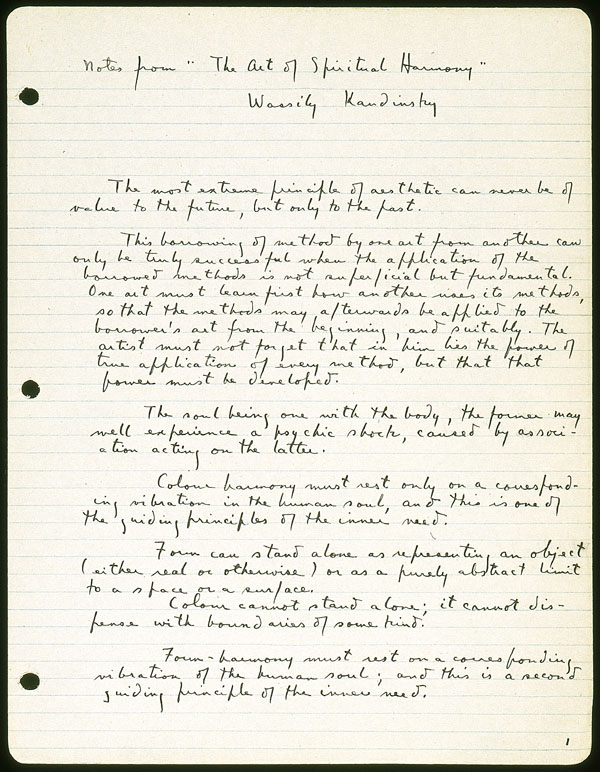 Notes from "The Art of Spiritual Harmony"
Wassily Kandinsky
The most extreme principle of aesthetic can never be of
value to the future, but only to the past.
This borrowing of method by one art from another can
only be truly successful when the application of the
borrowed methods is not superficial but fundamental.
One art must learn first how another uses its methods,
so that the methods may afterwards be applied to the
borrower's art from the beginning, and suitably. The
artist must not forget that in him lies the power of
true application of every method, but that that
power must be developed.
The soul being one with the body, the former may
well experience a psychic shock, caused by associ-
ation acting on the latter.
Colour harmony must rest only on a correspond-
ing vibration in the human soul, and this is one of
the guiding principles of the inner need.
Form can stand alone as representing an object
(either real or otherwise) or as a purely abstract limit
to a space or a surface.
Colour cannot stand alone; it cannot dis-
pense with boundaries of some kind.
Form-harmony must rest on a corresponding
vibration of the human soul; and this is a second
guiding principle of the inner need.
1